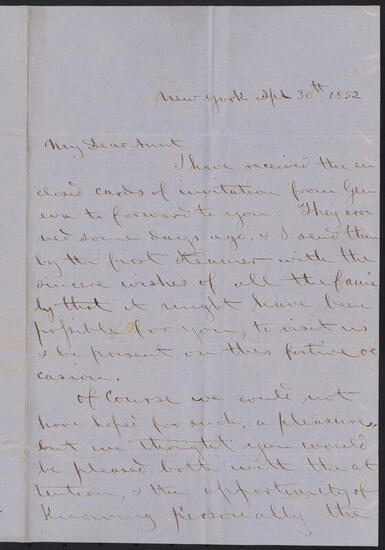 New York Apl 30th 1852
My Dear Aunt
I have received the en
closed cards of invitation from Gen
eva to forward to you. They arri
ved some days ago, & I send them
by the first steamer with the
sincere wishes of all the fami
ly that it might have been
possible for you, to visit us
& be present on this festive oc
casion.
Of course we could not
have hoped for such, a pleasure,
but we thought you would
be pleased, both with the at
tention, & the opportunity of
knowing personally the